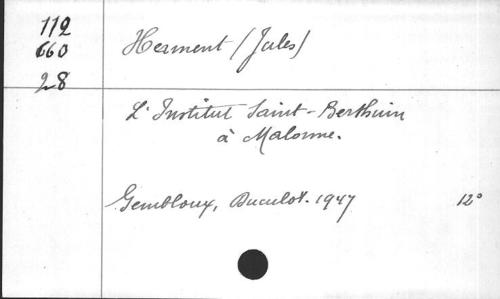 112
660
28
Herment (Jules)
L'Institut Saint-Berthuin
à Malonne.
Gembloux, Duculot. 1947
12°